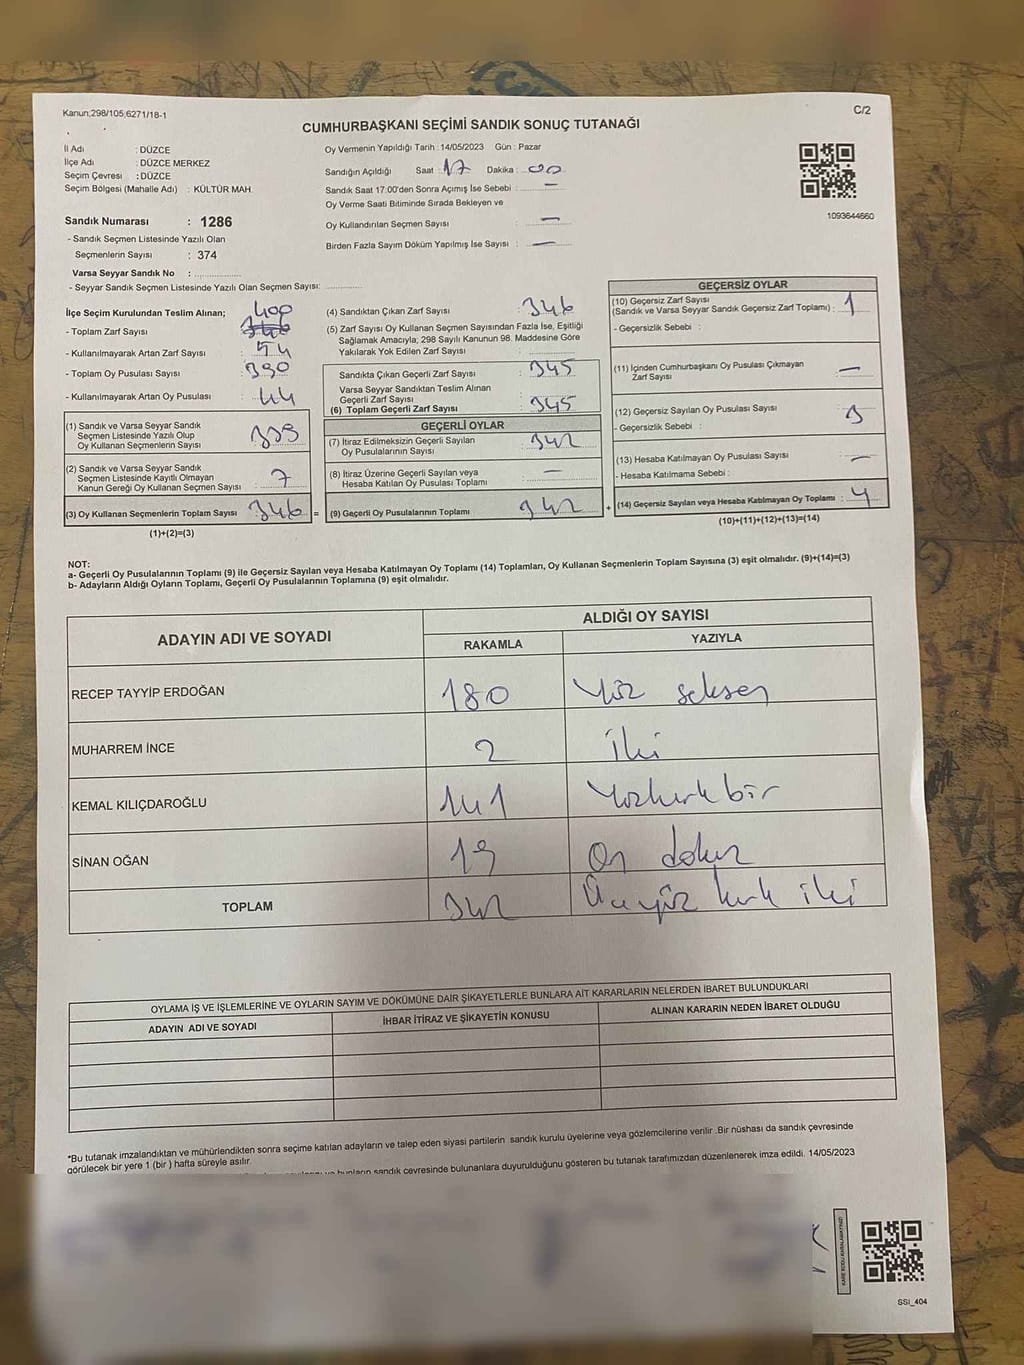 Kanun;298/105;6271/18-1
C/2
CUMHURBAŞKANI SEÇİMİ SANDIK SONUÇ TUTANAĞI
İl Adı : DÜZCE
İlçe Adı : DÜZCE MERKEZ
Seçim Çevresi : DÜZCE
Seçim Bölgesi (Mahalle Adı) : KÜLTÜR MAH.
Sandık Numarası : 1286
- Sandık Seçmen Listesinde Yazılı Olan
Seçmenlerin Sayısı : 374
Varsa Seyyar Sandık No :
- Seyyar Sandık Seçmen Listesinde Yazılı Olan Seçmen Sayısı:
Oy Vermenin Yapıldığı Tarih : 14/05/2023 Gün : Pazar
Sandığın Açıldığı Saat : 17 Dakika : 00
Sandık Saat 17.00'den Sonra Açımış İse Sebebi : —
Oy Verme Saati Bitiminde Sırada Bekleyen ve
Oy Kullandırılan Seçmen Sayısı : —
Birden Fazla Sayım Döküm Yapılmış İse Sayısı : —
1093644660
İlçe Seçim Kurulundan Teslim Alınan; 400
- Toplam Zarf Sayısı : 346
- Kullanılmayarak Artan Zarf Sayısı : 54
- Toplam Oy Pusulası Sayısı : 390
- Kullanılmayarak Artan Oy Pusulası : 44
(1) Sandık ve Varsa Seyyar Sandık
Seçmen Listesinde Yazılı Olup
Oy Kullanan Seçmenlerin Sayısı : 339
(2) Sandık ve Varsa Seyyar Sandık
Seçmen Listesinde Kayıtlı Olmayan
Kanun Gereği Oy Kullanan Seçmen Sayısı : 7
(3) Oy Kullanan Seçmenlerin Toplam Sayısı : 346 =
(1)+(2)=(3)
(4) Sandıktan Çıkan Zarf Sayısı : 346
(5) Zarf Sayısı Oy Kullanan Seçmen Sayısından Fazla İse, Eşitliği
Sağlamak Amacıyla; 298 Sayılı Kanunun 98. Maddesine Göre
Yakılarak Yok Edilen Zarf Sayısı :
Sandıkta Çıkan Geçerli Zarf Sayısı : 345
Varsa Seyyar Sandıktan Teslim Alınan
Geçerli Zarf Sayısı :
(6) Toplam Geçerli Zarf Sayısı : 345
GEÇERLİ OYLAR
(7) İtiraz Edilmeksizin Geçerli Sayılan
Oy Pusulalarının Sayısı : 342
(8) İtiraz Üzerine Geçerli Sayılan veya
Hesaba Katılan Oy Pusulası Toplamı : —
(9) Geçerli Oy Pusulalarının Toplamı : 342 +
GEÇERSİZ OYLAR
(10) Geçersiz Zarf Sayısı
(Sandık ve Varsa Seyyar Sandık Geçersiz Zarf Toplamı) : 1
- Geçersizlik Sebebi :
(11) İçinden Cumhurbaşkanı Oy Pusulası Çıkmayan
Zarf Sayısı : —
(12) Geçersiz Sayılan Oy Pusulası Sayısı : 3
- Geçersizlik Sebebi :
(13) Hesaba Katılmayan Oy Pusulası Sayısı : —
- Hesaba Katılmama Sebebi :
(14) Geçersiz Sayılan veya Hesaba Katılmayan Oy Toplamı : 4
(10)+(11)+(12)+(13)=(14)
NOT:
a- Geçerli Oy Pusulalarının Toplamı (9) ile Geçersiz Sayılan veya Hesaba Katılmayan Oy Toplamı (14) Toplamları, Oy Kullanan Seçmenlerin Toplam Sayısına (3) eşit olmalıdır. (9)+(14)=(3)
b- Adayların Aldığı Oyların Toplamı, Geçerli Oy Pusulalarının Toplamına (9) eşit olmalıdır.
ADAYIN ADI VE SOYADI ALDIĞI OY SAYISI
RAKAMLA YAZIYLA
RECEP TAYYİP ERDOĞAN 180 Yüz seksen
MUHARREM İNCE 2 İki
KEMAL KILIÇDAROĞLU 141 Yüzkırkbir
SİNAN OĞAN 19 On dokuz
TOPLAM 342 Üçyüz kırk iki
OYLAMA İŞ VE İŞLEMLERİNE VE OYLARIN SAYIM VE DÖKÜMÜNE DAİR ŞİKAYETLERLE BUNLARA AİT KARARLARIN NELERDEN İBARET BULUNDUKLARI
ADAYIN ADI VE SOYADI İHBAR İTİRAZ VE ŞİKAYETİN KONUSU ALINAN KARARIN NEDEN İBARET OLDUĞU
*Bu tutanak imzalandıktan ve mühürlendikten sonra seçime katılan adayların ve talep eden siyasi partilerin sandık kurulu üyelerine veya gözlemcilerine verilir .Bir nüshası da sandık çevresinde
görülecek bir yere 1 (bir ) hafta süreyle asılır.
bunların sandık çevresinde bulunanlara duyurulduğunu gösteren bu tutanak tarafımızdan düzenlenerek imza edildi. 14/05/2023
KARE KODU KARALAMAYINIZ!
SSI_404